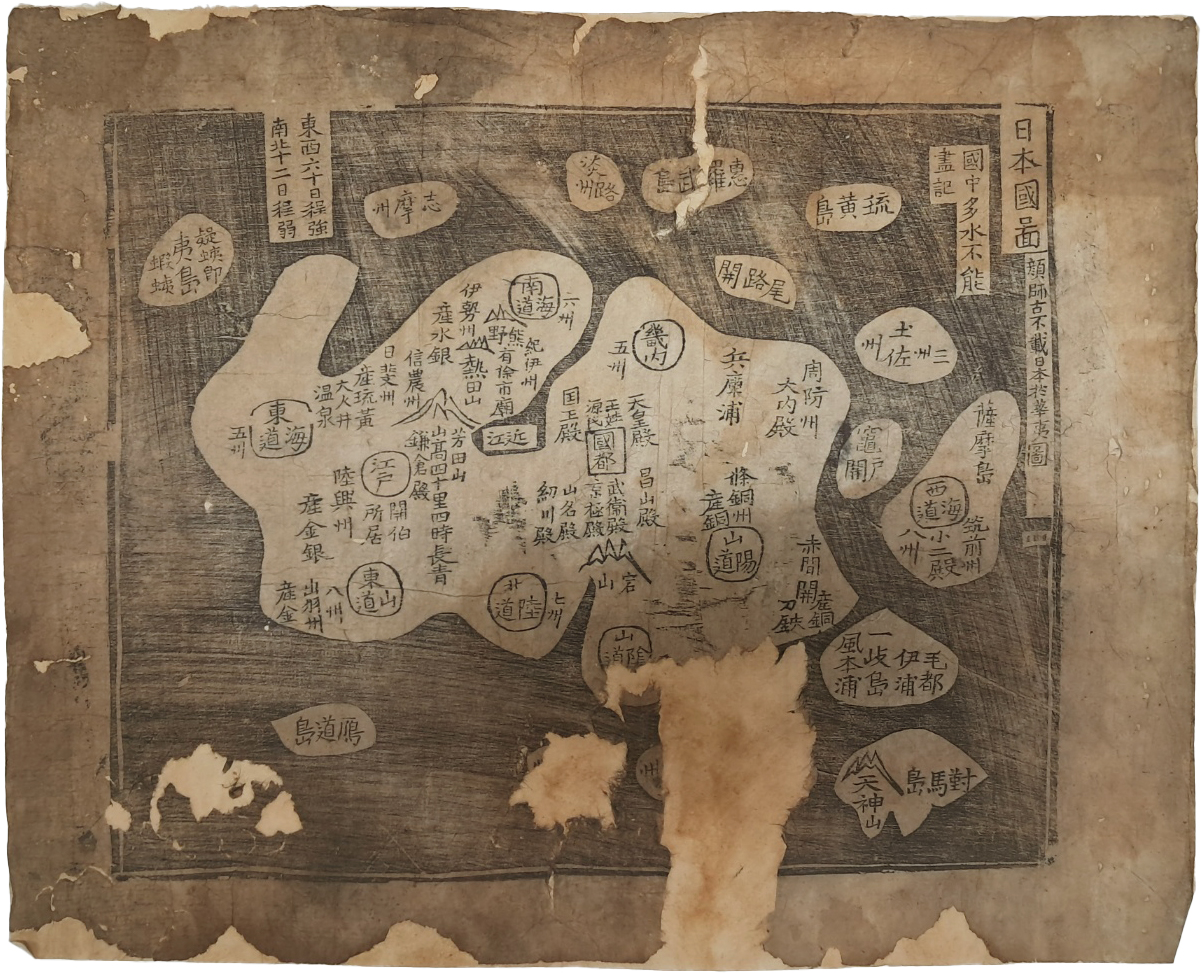 日本國啚
顔師古不載日本於華夷圖
國中多水不能
盡記
琉黃島
惠羅武島
淡路州
志摩州
東西六十日程強
南北十二日程弱
夷島
尾路關
土佐州
三州
竈戶關
薩摩島
西海道
八州
小二殿
筑前州
周防州
大內殿
兵庫浦
畿內
五州
天皇殿
國都
国王殿
昌山殿
武衛殿
京極殿
山名殿
産銅
山陽道
赤間關
産銅
山陰道
南海道
六州
紀伊州
熊野
有徐市廟
伊勢州
産水銀
熱田山
近江
信濃州
山高四十里四時長靑
鎌倉殿
産琉黃
大火井
温泉
東海道
五州
江戶
所居
産金銀
東山道
八州
出羽州
産金
北陸道
七州
毛都
伊浦
一歧島
風本浦
對馬島
天神山
鴈道島
州